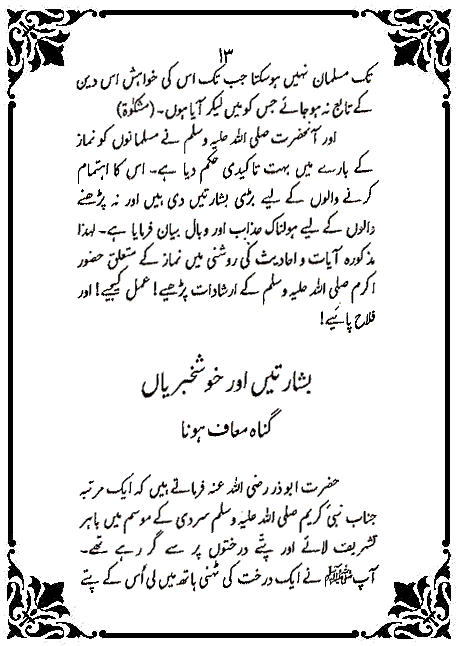 ۱۳
تک مسلمان نہیں ہوسکتا جب تک اس کی خواہش اس دین
کے تابع نہ ہوجائے جس کو میں لیکر آیا ہوں۔ (مشکوٰۃ)
اور آنحضرت صلی اللہ علیہ وسلم نے مسلمانوں کو نماز
کے بارے میں بہت تاکیدی حکم دیا ہے۔ اس کا اہتمام
کرنے والوں کے لیے بڑی بشارتیں دی ہیں اور نہ پڑھنے
والوں کے لیے ہولناک عذاب اور وبال بیان فرمایا ہے۔ لہذا
مذکورہ آیات و احادیث کی روشنی میں نماز کے متعلق حضور
اکرم صلی اللہ علیہ وسلم کے ارشادات پڑھیے! عمل کیجیے! اور
فلاح پائیے!
بشارتیں اور خوشخبریاں
گناہ معاف ہونا
حضرت ابوذر رضی اللہ عنہ فرماتے ہیں کہ ایک مرتبہ
جناب نبی کریم صلی اللہ علیہ وسلم سردی کے موسم میں باہر
تشریف لائے اور پتے درختوں پر سے گر رہے تھے۔
آپ ﷺ نے ایک درخت کی ٹہنی ہاتھ میں لی اُس کے پتے